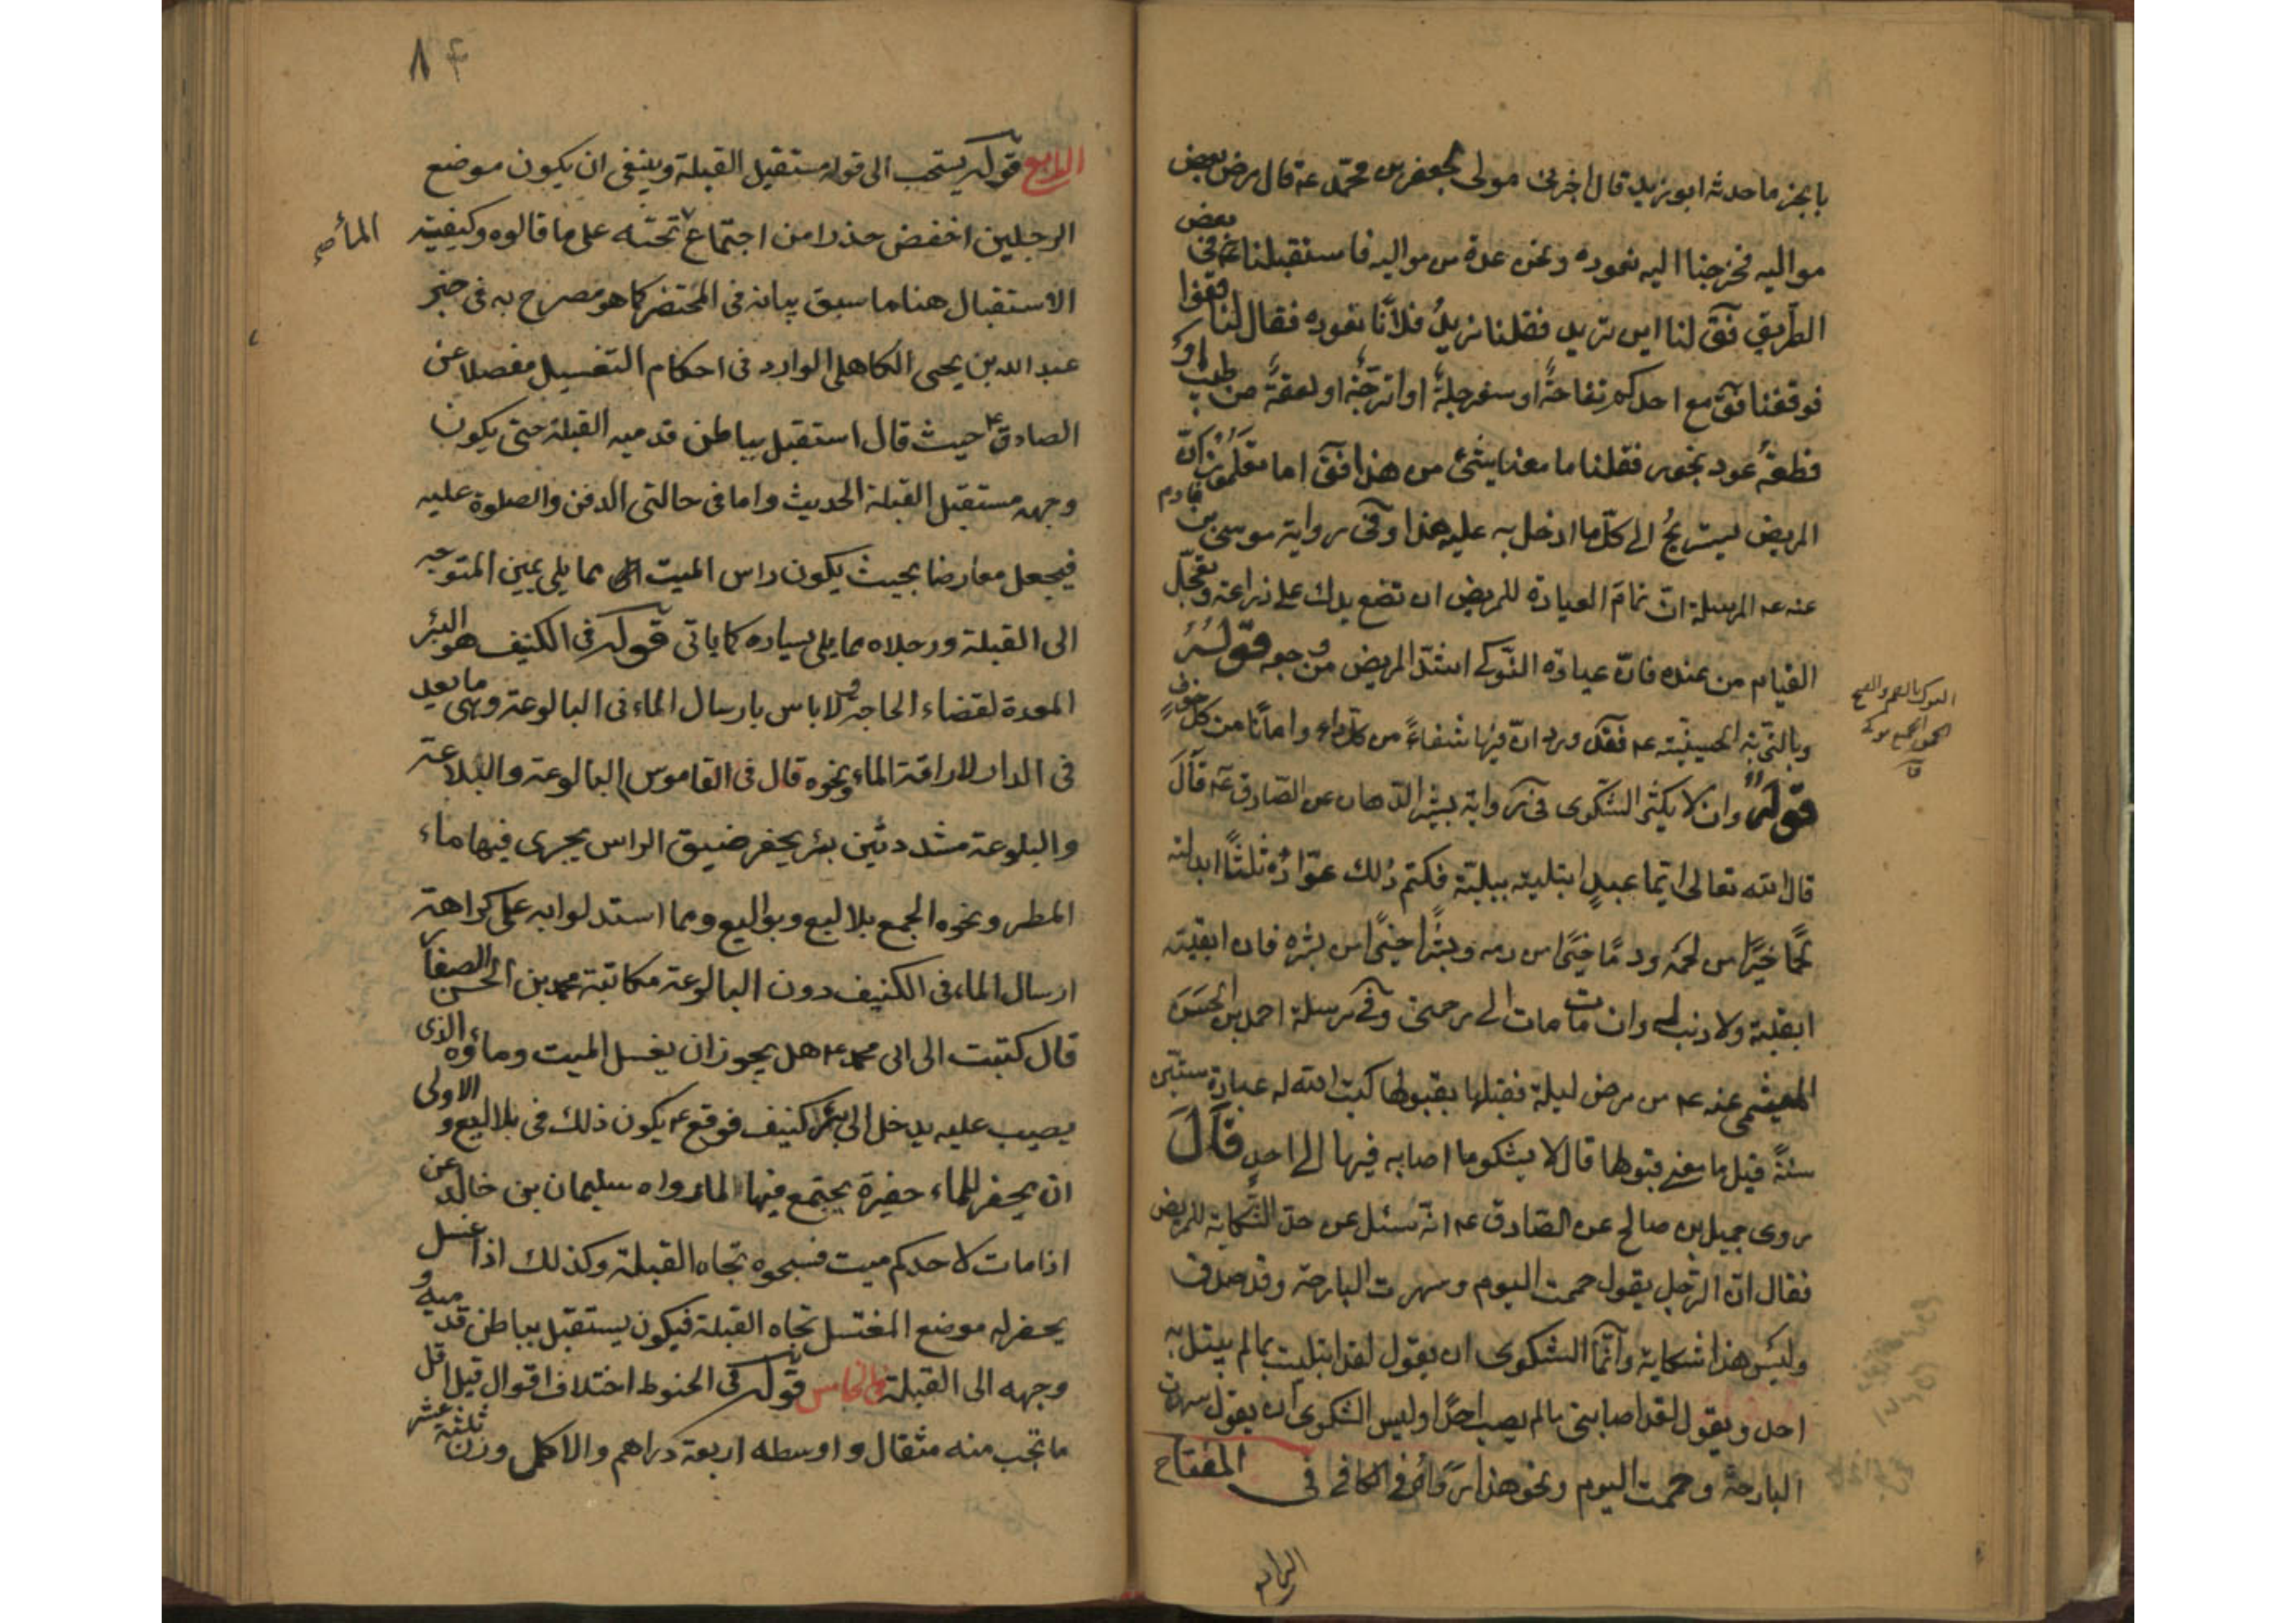 بايجز ما حدثه ابو يزيد قال اخبرني مولى لجعفر بن محمد عه قال مرض بعض
مواليه فخرجنا اليه نعوده ونحن عدة من مواليه فاستقبلنا عه في بعض
الطريق فق لنا اين تريد فقلنا نريد فلانا نعوده فقال لنا قفوا
فوقفنا فق مع احدكم تفاحة او سفرجلة او اترجة او لعقة من طيب او
قطعة عود بخور فقلنا ما معنا شئ من هذا فق اما تعلمون ان
المريض ليستريح الى كل ما ادخل به عليه هذا وفي رواية موسى بن قادم
عنه عه المرسلة ان تمام العيادة للمريض ان تضع يدك على ذراعه وتعجل
القيام من عنده فان عيادة النوكى اشد المريض من وجعه قوله
وبالتربة الحسينية عه فقد ورد ان فيها شفاء من كل داء وامانا من كل خوف
قوله وان لا يكثر الشكوى في رواية بشير الدهان عن الصادق عه قال
قال الله تعالى ايما عبد ابتليته ببلية فكتم ذلك عواده ثلثا ابدلته
لحما خيرا من لحمه ودما خيرا من دمه وبشرا خيرا من بشره فان ابقيته
ابقيته ولا ذنب له وان مات مات الى رحمتي وفي مرسلة احمد بن الحسن
الميثمي عنه عه من مرض ليلة فقبلها بقبولها كتب الله له عبادة ستين
سنة قيل ما معنى قبولها قال لا يشكو ما اصابه فيها الى احد قال
روى جميل بن صالح عن الصادق عه انه سئل عن حد الشكاية للمريض
فقال ان الرجل يقول حممت اليوم وسهرت البارحة وقد صدق
وليس هذا شكاية وانما الشكوى ان يقول لقد ابتليت بما لم يبتل به
احد ويقول لقد اصابني ما لم يصب احدا وليس الشكوى ان يقول سهرت
البارحة وحممت اليوم ونحو هذا في الكافي في المفتاح
الرابع
٨٤
الرابع قوله يستحب الى قوله مستقبل القبلة وينبغي ان يكون موضع
الرجلين اخفض حذرا من اجتماع تحته على ما قالوه وكيفية
الماء صح
الاستقبال هنا ما سبق بيانه في المحتضر كما هو مصرح به في خبر
عبد الله بن يحيى الكاهلي الوارد في احكام التغسيل مفصلا عن
الصادق ع حيث قال استقبل بباطن قدميه القبلة حتى يكون
وجهه مستقبل القبلة الحديث واما في حالتي الدفن والصلوة عليه
فيجعل معارضا بحيث يكون راس الميت مما يلي يمين المتوجه
الى القبلة ورجلاه مما يلي يساره كما ياتي قوله في الكنيف هو البئر
المعدة لقضاء الحاجة ولا باس بارسال الماء في البالوعة وهي ما يعد
في الدار لاراقة الماء ونحوه قال في القاموس البالوعة والبلاعة
والبلوعة مشددتين بئر يحفر ضيق الراس يجرى فيها ماء
المطر ونحوه الجمع بلاليع وبواليع ومما استدلوا به على كراهة
ارسال الماء في الكنيف دون البالوعة مكاتبة محمد بن الحسن الصفار
قال كتبت الى ابي محمد ع هل يجوز ان يغسل الميت وماؤه الذي
يصب عليه يدخل الى بئر كنيف فوقع ع يكون ذلك في بلاليع والاولى
ان يحفر للماء حفيرة يجتمع فيها الماء رواه سليمان بن خالد عن
اذا مات لاحدكم ميت فسجوه تجاه القبلة وكذلك اذا غسل
يحفر له موضع المغتسل تجاه القبلة فيكون يستقبل بباطن قدميه و
وجهه الى القبلة الخامس قوله في الحنوط اختلاف اقوال قيل اقل
ما تجب منه مثقال واوسطه اربعة دراهم والاكمل وزن ثلثة عشر